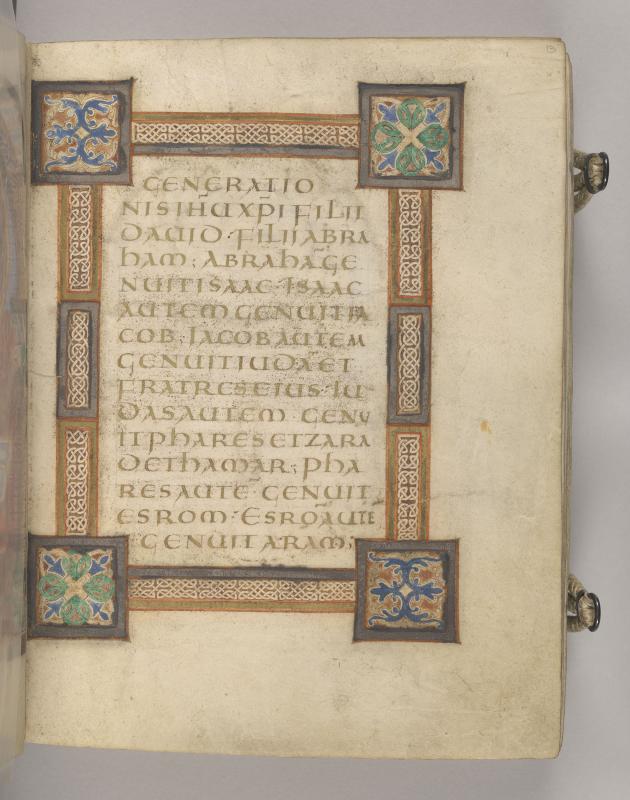 13
GENERATIO
NIS IHU XPI FILII
DAUID · FILII ABRA
HAM; ABRAHA GE
NUIT ISAAC · ISAAC
AUTEM GENUIT IA
COB; IACOB AUTEM
GENUIT IUDA ET
FRATRES EIUS · IU
DAS AUTEM GENV
IT PHARES ET ZARA
DE THAMAR; PHA
RES AUTE GENUIT
ESROM · ESRO AUTE
GENUIT ARAM;